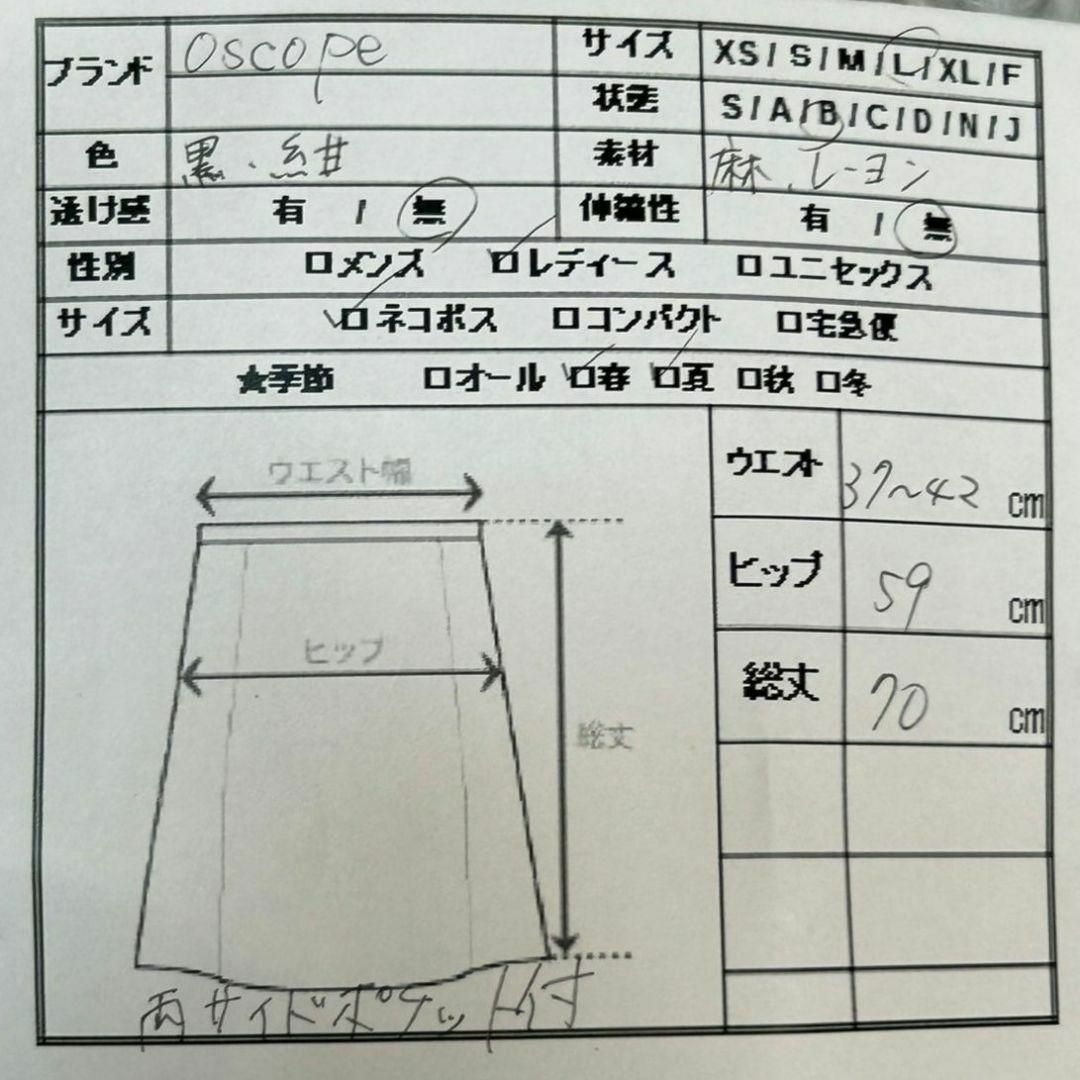 ブランド oscope サイズ XS/S/M/L/XL/F
状態 S/A/B/C/D/N/J
色 黒、紺 素材 麻、レーヨン
透け感 有 / 無 伸縮性 有 / 無
性別 □メンズ □レディース □ユニセックス
サイズ □ネコポス □コンパクト □宅急便
★季節 □オール □春 □夏 □秋 □冬
ウエスト幅
ウエスト 37~42 cm
ヒップ 59 cm
ヒップ
総丈 70 cm
総丈
両サイドポケット付